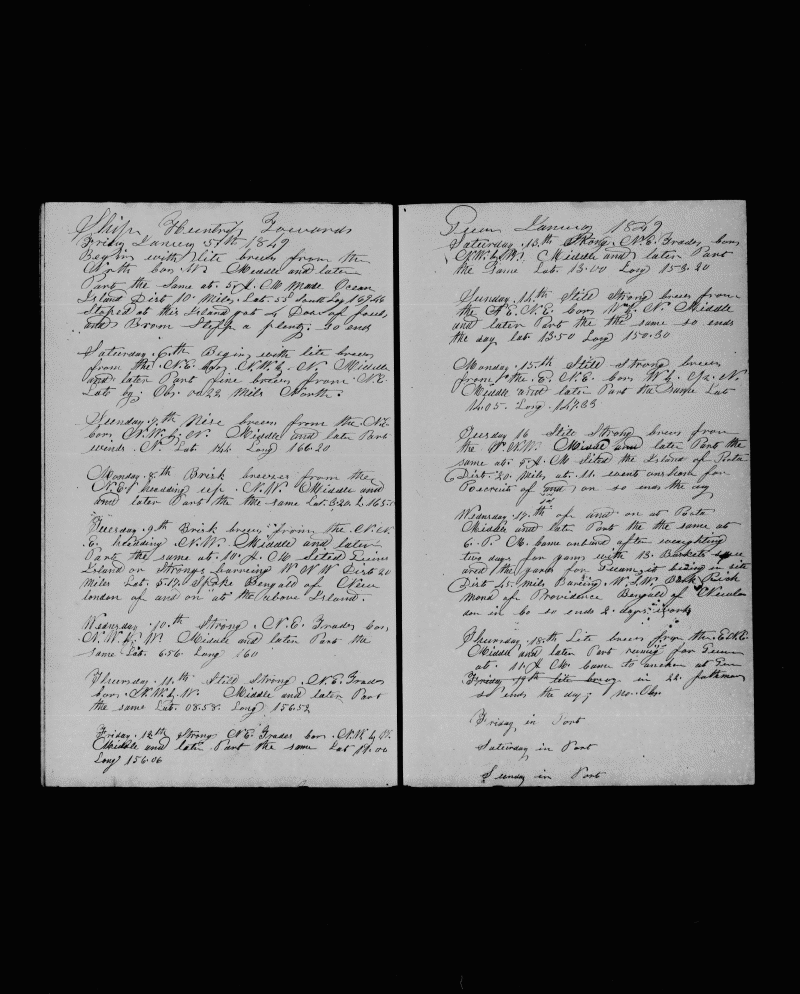 Ship Huntres Towards
Friday January 5th 1849
Begins with lite breeses from the
North cors W. Middle and later
Part the same at 5 A. M Made Ocean
Island Dist 10 Miles. Lat. 55 South Log 169.44
Stoped at this Island got 4 Dos of fouls
and Broom Stuff a plenty. so ends
Saturday 6th Begins with lite breeses
from the N.E. Cors. N.W.b.N. Middle
and later Part fine breeses from N.E.
Lat by. Obs. 0.22 Mile North.
Sunday 7th Nise breeses from the N.E.
cors. N.W.b.N. Middle and later Part
winds N. Lat 1.44 Long 166.20
Monday 8th Brisk breezes from the
N.E. heading up. N.W. Middle and
and later Part the the same Lat. 3.20 L 165
Tuesday 9th Brisk breeses from the N.N.
E. heading N.W. Middle and later
Part the same at 10 A. M Sited
Island or Strongs barreing W N W Dist 20
Miles Lat. 5.17 Spoke Bengall of New
london of and on at the above Island.
Wednesday 10th Strong N.E. Trades cors
N.W.b.W. Middle and later Part the
same Lat. 6.56 Long 160
Thursday 11th Still Strong N.E. Trades
cors. N.W.b.W. Middle and later Part
the same Lat. 08.58 Long 156.58
Friday 12th Strong N.E. Trades cors. N.W.b.W.
Middle and later Part the same Lat 11.00
Long 156.06
Guam January 1849
Saturday 13th Strong N.E. Trades cors
N.W.b.W. Middle and later Part
the Same Lat. 13.00 Long 153.20
Sunday 14th Still Strong breeses from
the N.E. cors W.b.N. Middle
and later Part the the same so ends
the day Lat 13.50 Long 150.30
Monday 15th Still strong breeses
from the E.N.E. cors W.b. 1/2 N.
Middle and later Part the same Lat
14.05 Long 147.33
Tuesday 16 Still Strong breeses from
the Middle and later Part the
same at 5 A. M Sited the Island of Rota
Dist 20 Miles at 11 went on shore for
Recruits of and on so ends the day
Wednesday 17th of and on at Rota
Middle and later Part the the same at
6 P. M. Came onboard after
two days for yams with 13 Baskets
and the yams for Guam it being in site
Dist 45 Miles Baring W.S.W. Bark Rich
mond of Providence Bengall of Newlon
don in co so ends 2 days work
Thursday 18th Lite breeses from the
Middle and later Part for Guam
at 11 A. M Came to anchor at Gua
Friday 19th lite breeses in 22 fathoms
so ends the day; no. Obs
Friday in Port
Saturday in Port
Sunday in Port